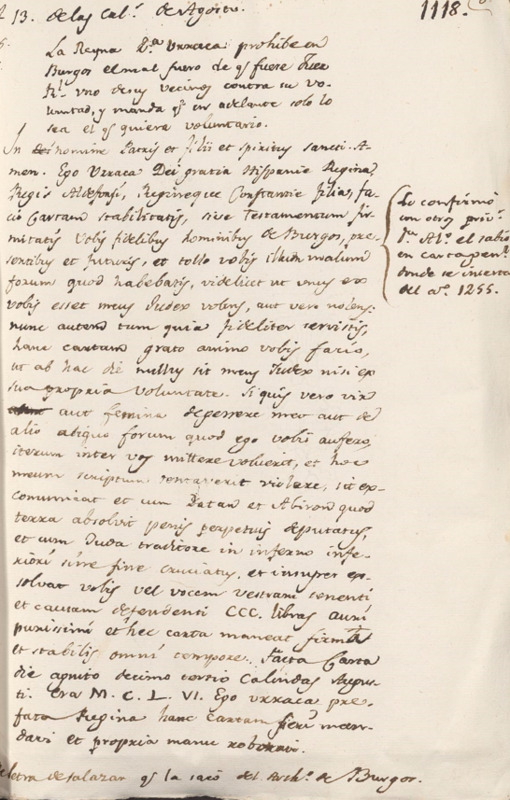 13. de las Cal.s de Agosto.
1118.
La Reyna D.a Vrraca prohibe en
Burgos el mal fuero de q.e fuese Juez
R.l uno de sus vecinos contra su vo-
luntad, y manda q.e en adelante solo lo
sea el q.e quiera voluntario.
In nomine Patris et filii et spiritus sancti. A-
men. Ego Vrraca Dei gratia Hispanie Regina,
Regis Aldefonsi, Regineque Constantie filia, fa-
cio Cartam stabilitatis, sive Testamentum fir-
mitatis vobis fidelibus hominibus de Burgos, pre-
sentibus et futuris, et tollo vobis illum malum
forum quod habebatis, videlicet ut unus ex
vobis esset meus Judex volens, aut vero nolens:
nunc autem tum quia fideliter servistis,
hanc cartam grato animo vobis facio,
ut ab hac die nullus sit meus Judex nisi ex
sua propria voluntate. Si quis vero vir
aut femina de genere meo aut de
alio aliquo forum quod ego vobis aufero,
iterum inter vos mittere voluerit, et hoc
meum scriptum tentaverit violare, sit ex-
comunicat et cum Datan et Abiron quod
terra absolvit penis perpetuis deputatus,
et cum Juda traditore in inferno infe-
riori sine fine cruciatus, et insuper ex-
solvat vobis vel vocem vestram tenenti
et cautam defendenti CCC. libras auri
purissimi et hec carta maneat firma
et stabilis omni tempore. Facta Carta
die agnito decimo tertio Calendas Augus-
ti. Era M. C. L. VI. Ego Vrraca pre-
fata Regina hanc cartam fieri man-
davi et propria manu roboravi.
Lo confirmó
con otros priv.s
D.n Al.o el sabio
en carta
donde se inserta
del a.o 1255.
letra de Salazar q.e la sacó del Arch.o de Burgos.